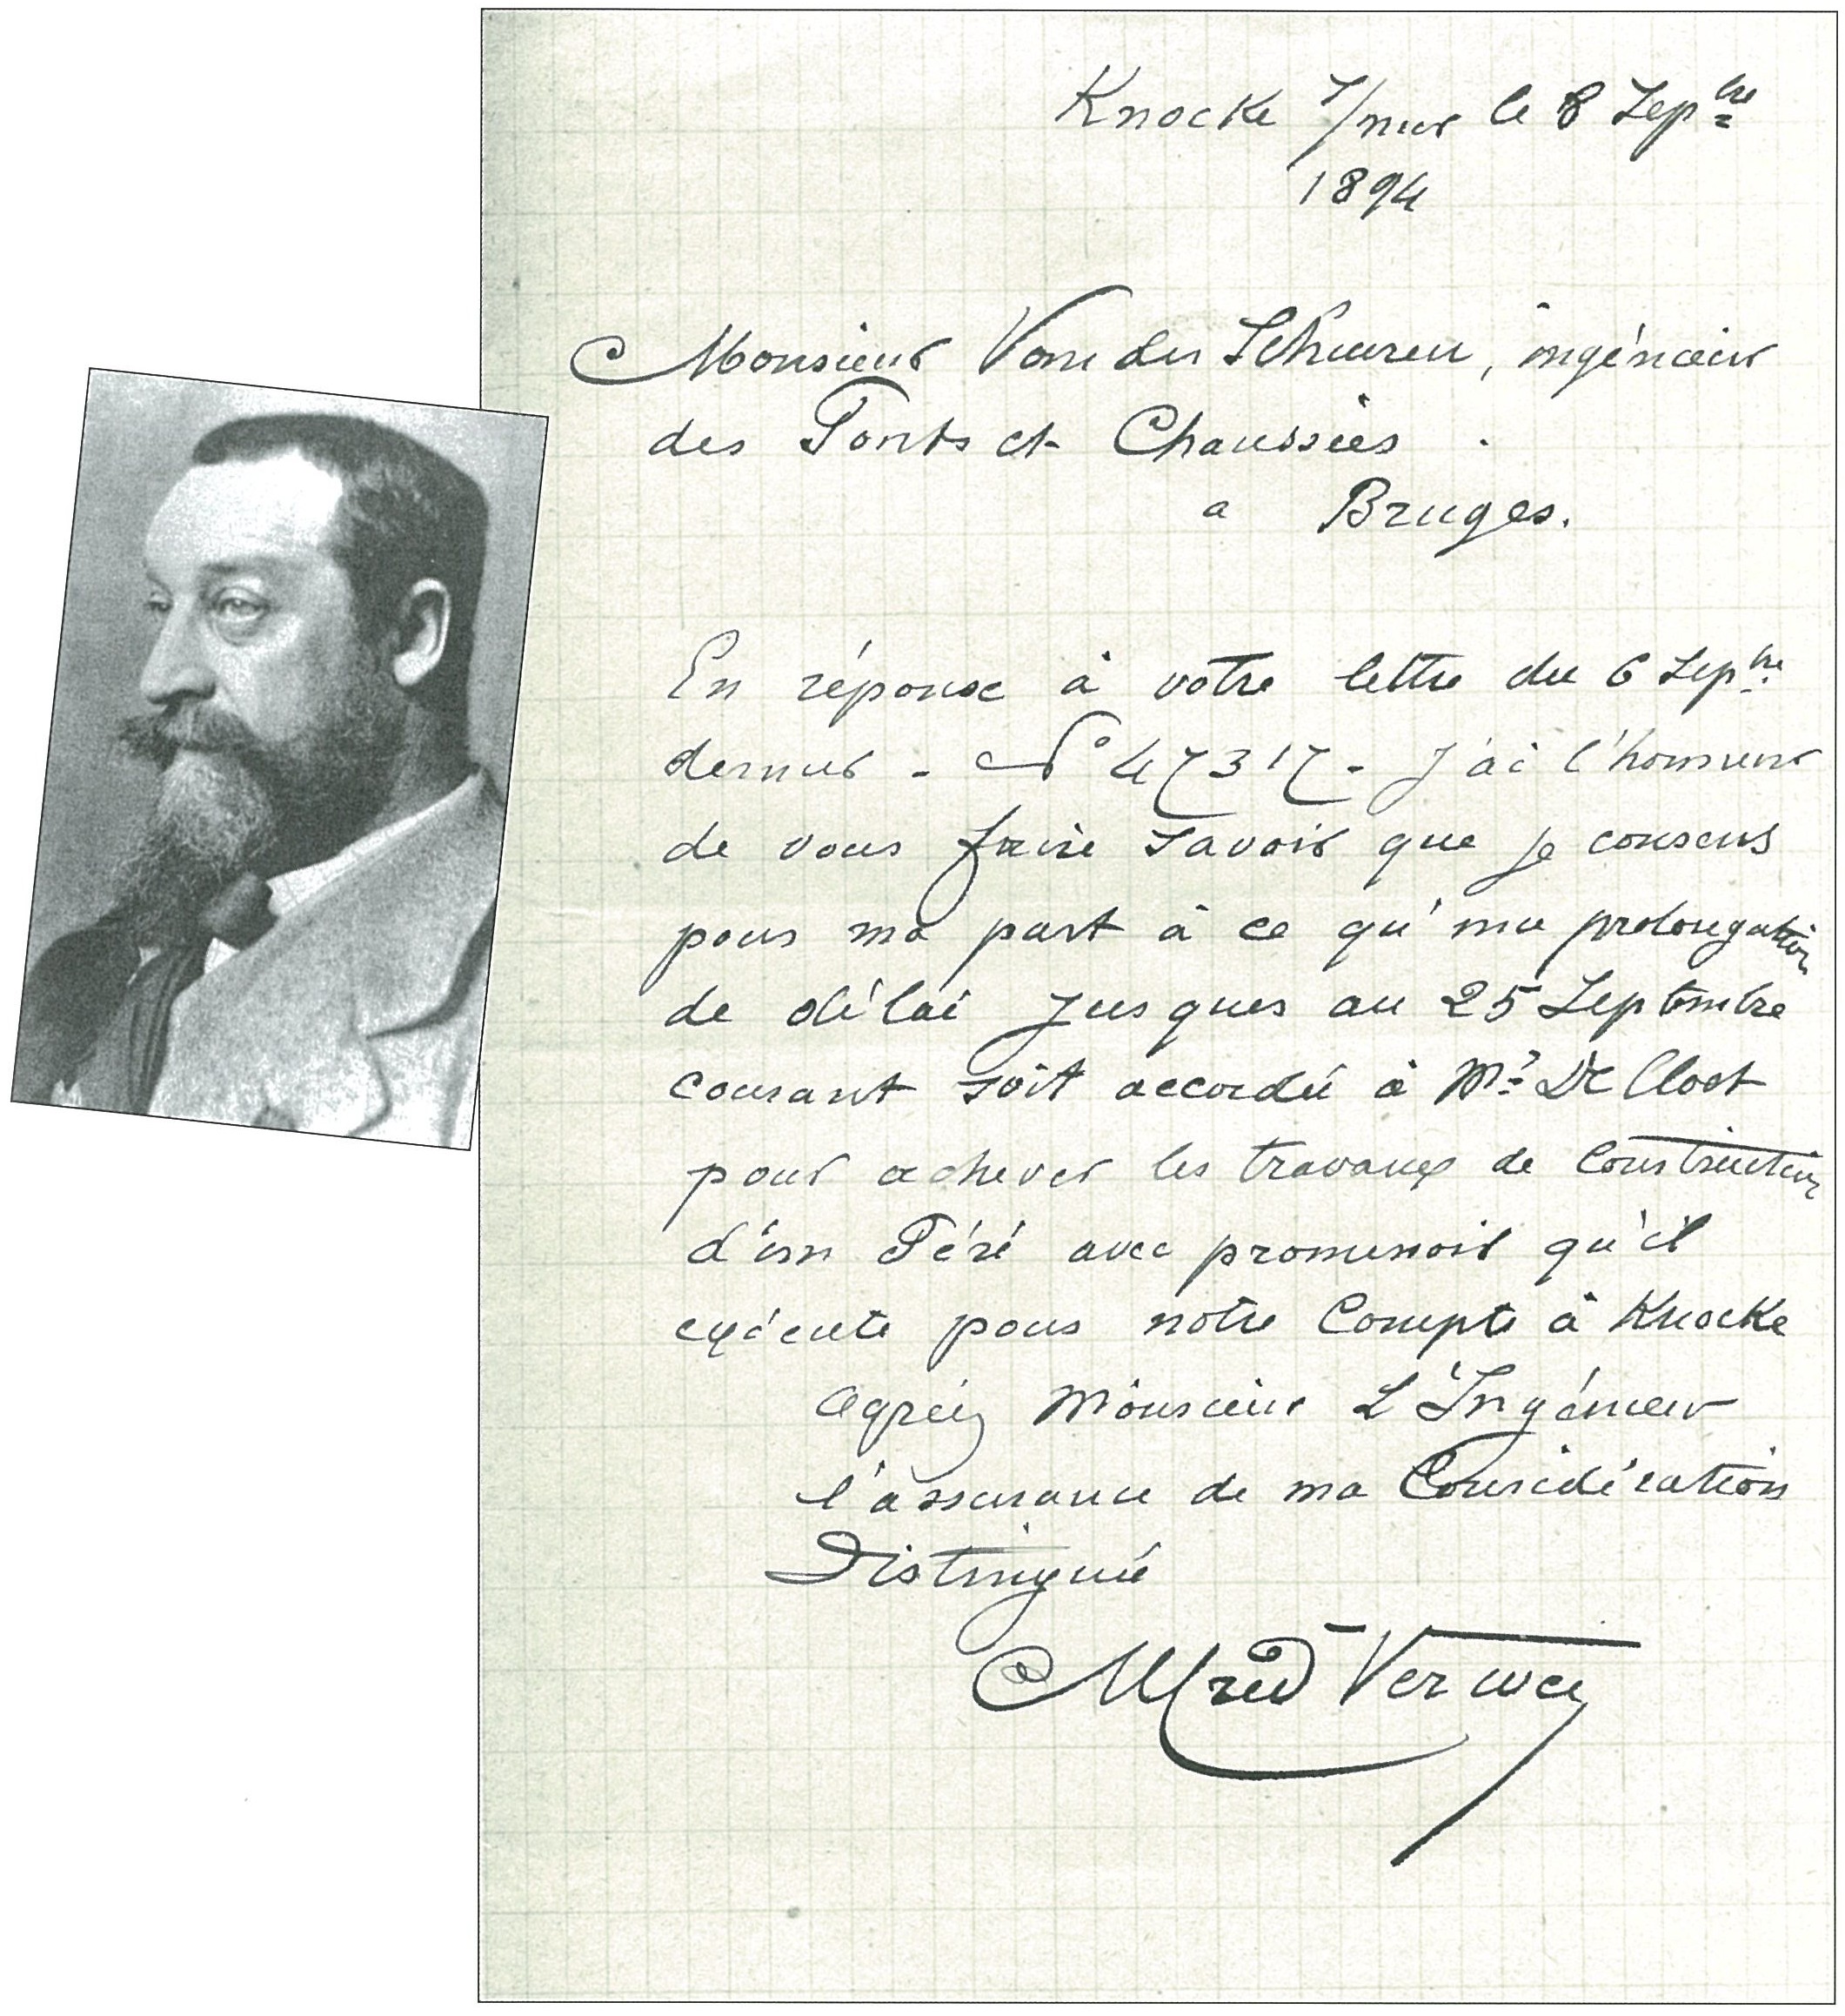 Knocke s/mer le 8 Sepbre
1894
Monsieur Van der Schueren, ingénieur
des Ponts et Chaussées
a Bruges.
En réponse à votre lettre du 6 Sepbre
dernier - No 47317 - j'ai l'honneur
de vous faire savoir que je consens
pour ma part à ce qu'une prolongation
de délai jusques au 25 Septembre
courant soit accordée à Mr De Cloet
pour achever les travaux de Construction
d'un Péré avec promenoir qu'il
exécute pour notre Compte à Knocke
Agréez Monsieur L'Ingénieur
l'assurance de ma Considération
Distinguée
Alfred Verwee